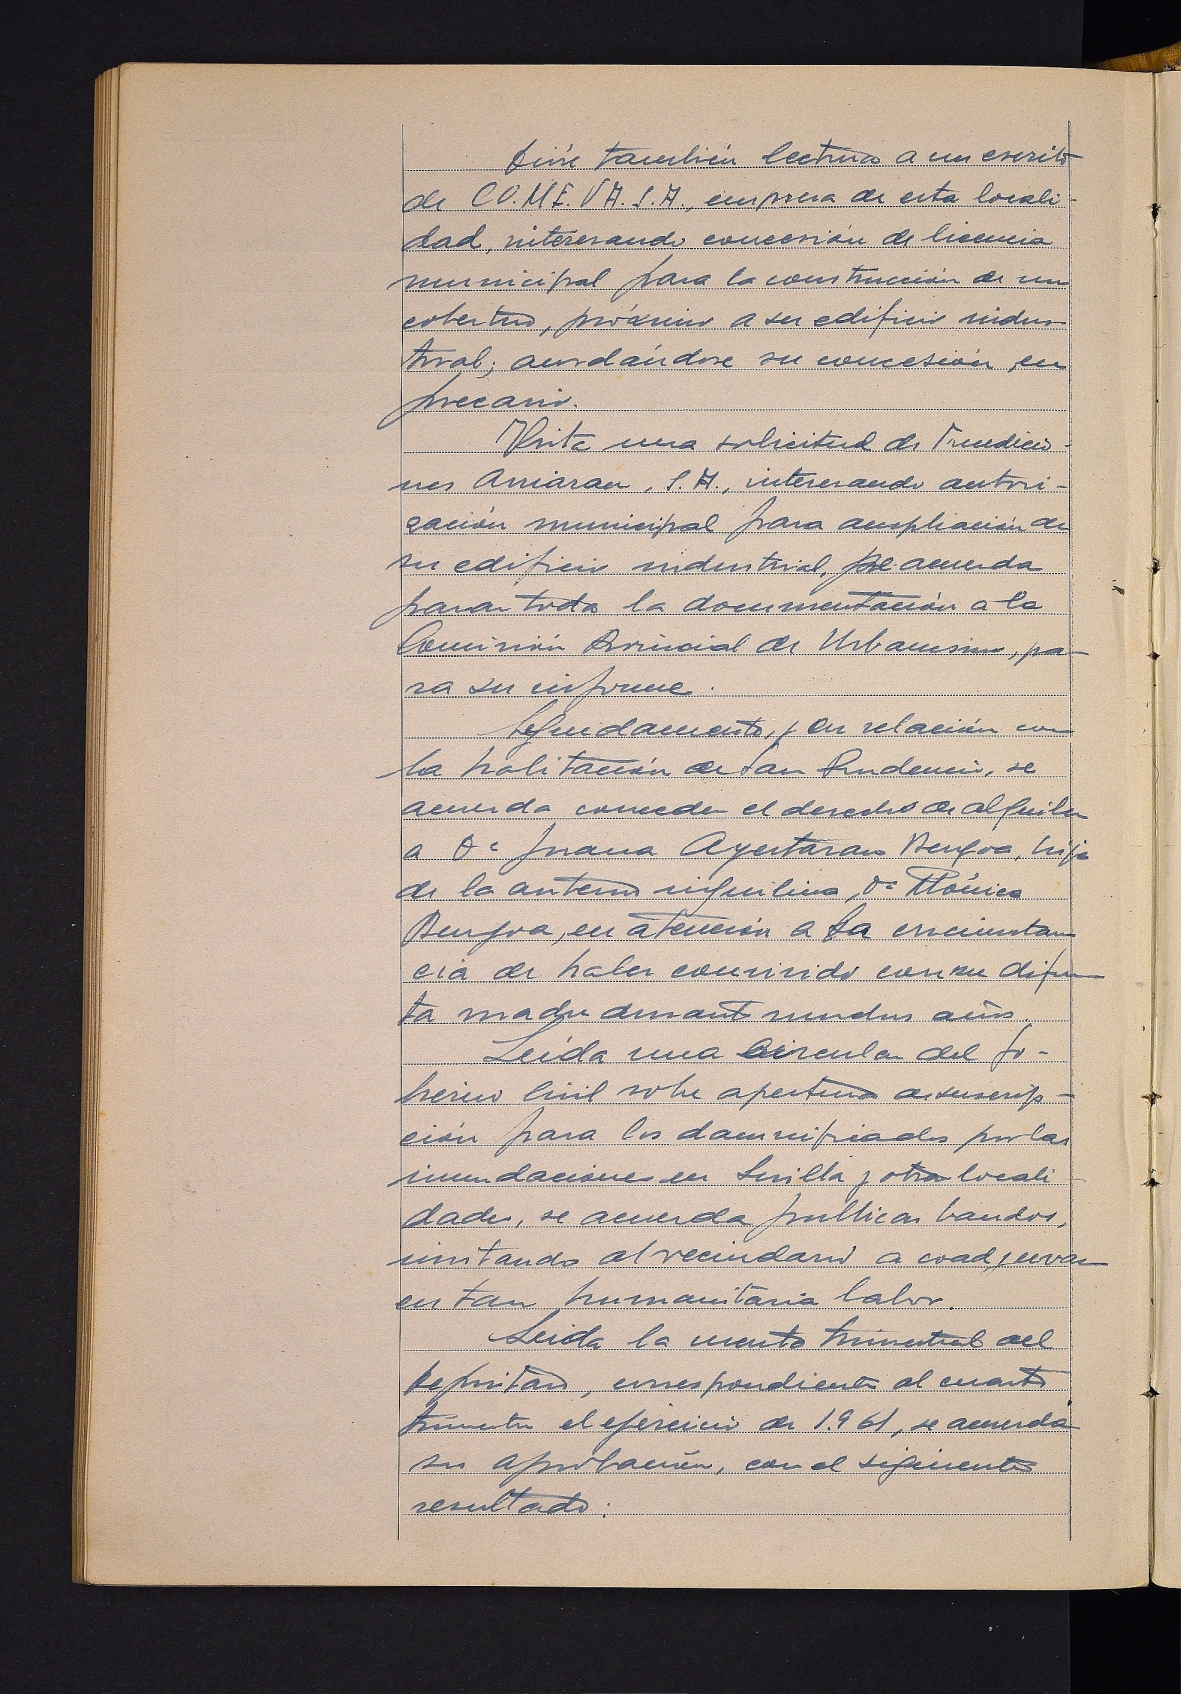 Dióse también lectura a un escrito
de CO.ME.VA.S.A., empresa de esta locali-
dad, interesando concesión de licencia
municipal para la construcción de un
cobertizo, próximo a su edificio indus
trial; acordándose su concesión, en
precario.
Vista una solicitud de Fundicio-
nes Amiaran, S.A., interesando autori-
zación municipal para ampliación de
su edificio industrial, se acuerda
pasar toda la documentación a la
Comisión Provincial de Urbanismo, pa-
ra su informe.
Seguidamente, y en relación con
la habitación de San Prudencio, se
acuerda conceder el derecho de alquiler
a Dª Juana Ayastaran Bengoa, hija
de la anterior inquilina, Dª Mónica
Bengoa, en atención a la circunstan
cia de haber convivido con su difun
ta madre durante muchos años.
Leída una Circular del Go-
bierno Civil sobre apertura de suscrip-
ción para los damnificados por las
inundaciones en Sevilla y otras locali-
dades, se acuerda publicar bandos,
invitando al vecindario a coadyuvar
en tan humanitaria labor.
Leída la cuenta trimestral del
Depositario, correspondiente al cuarto
trimestre el ejercicio de 1.961, se acuerda
su aprobación, con el siguiente
resultado: